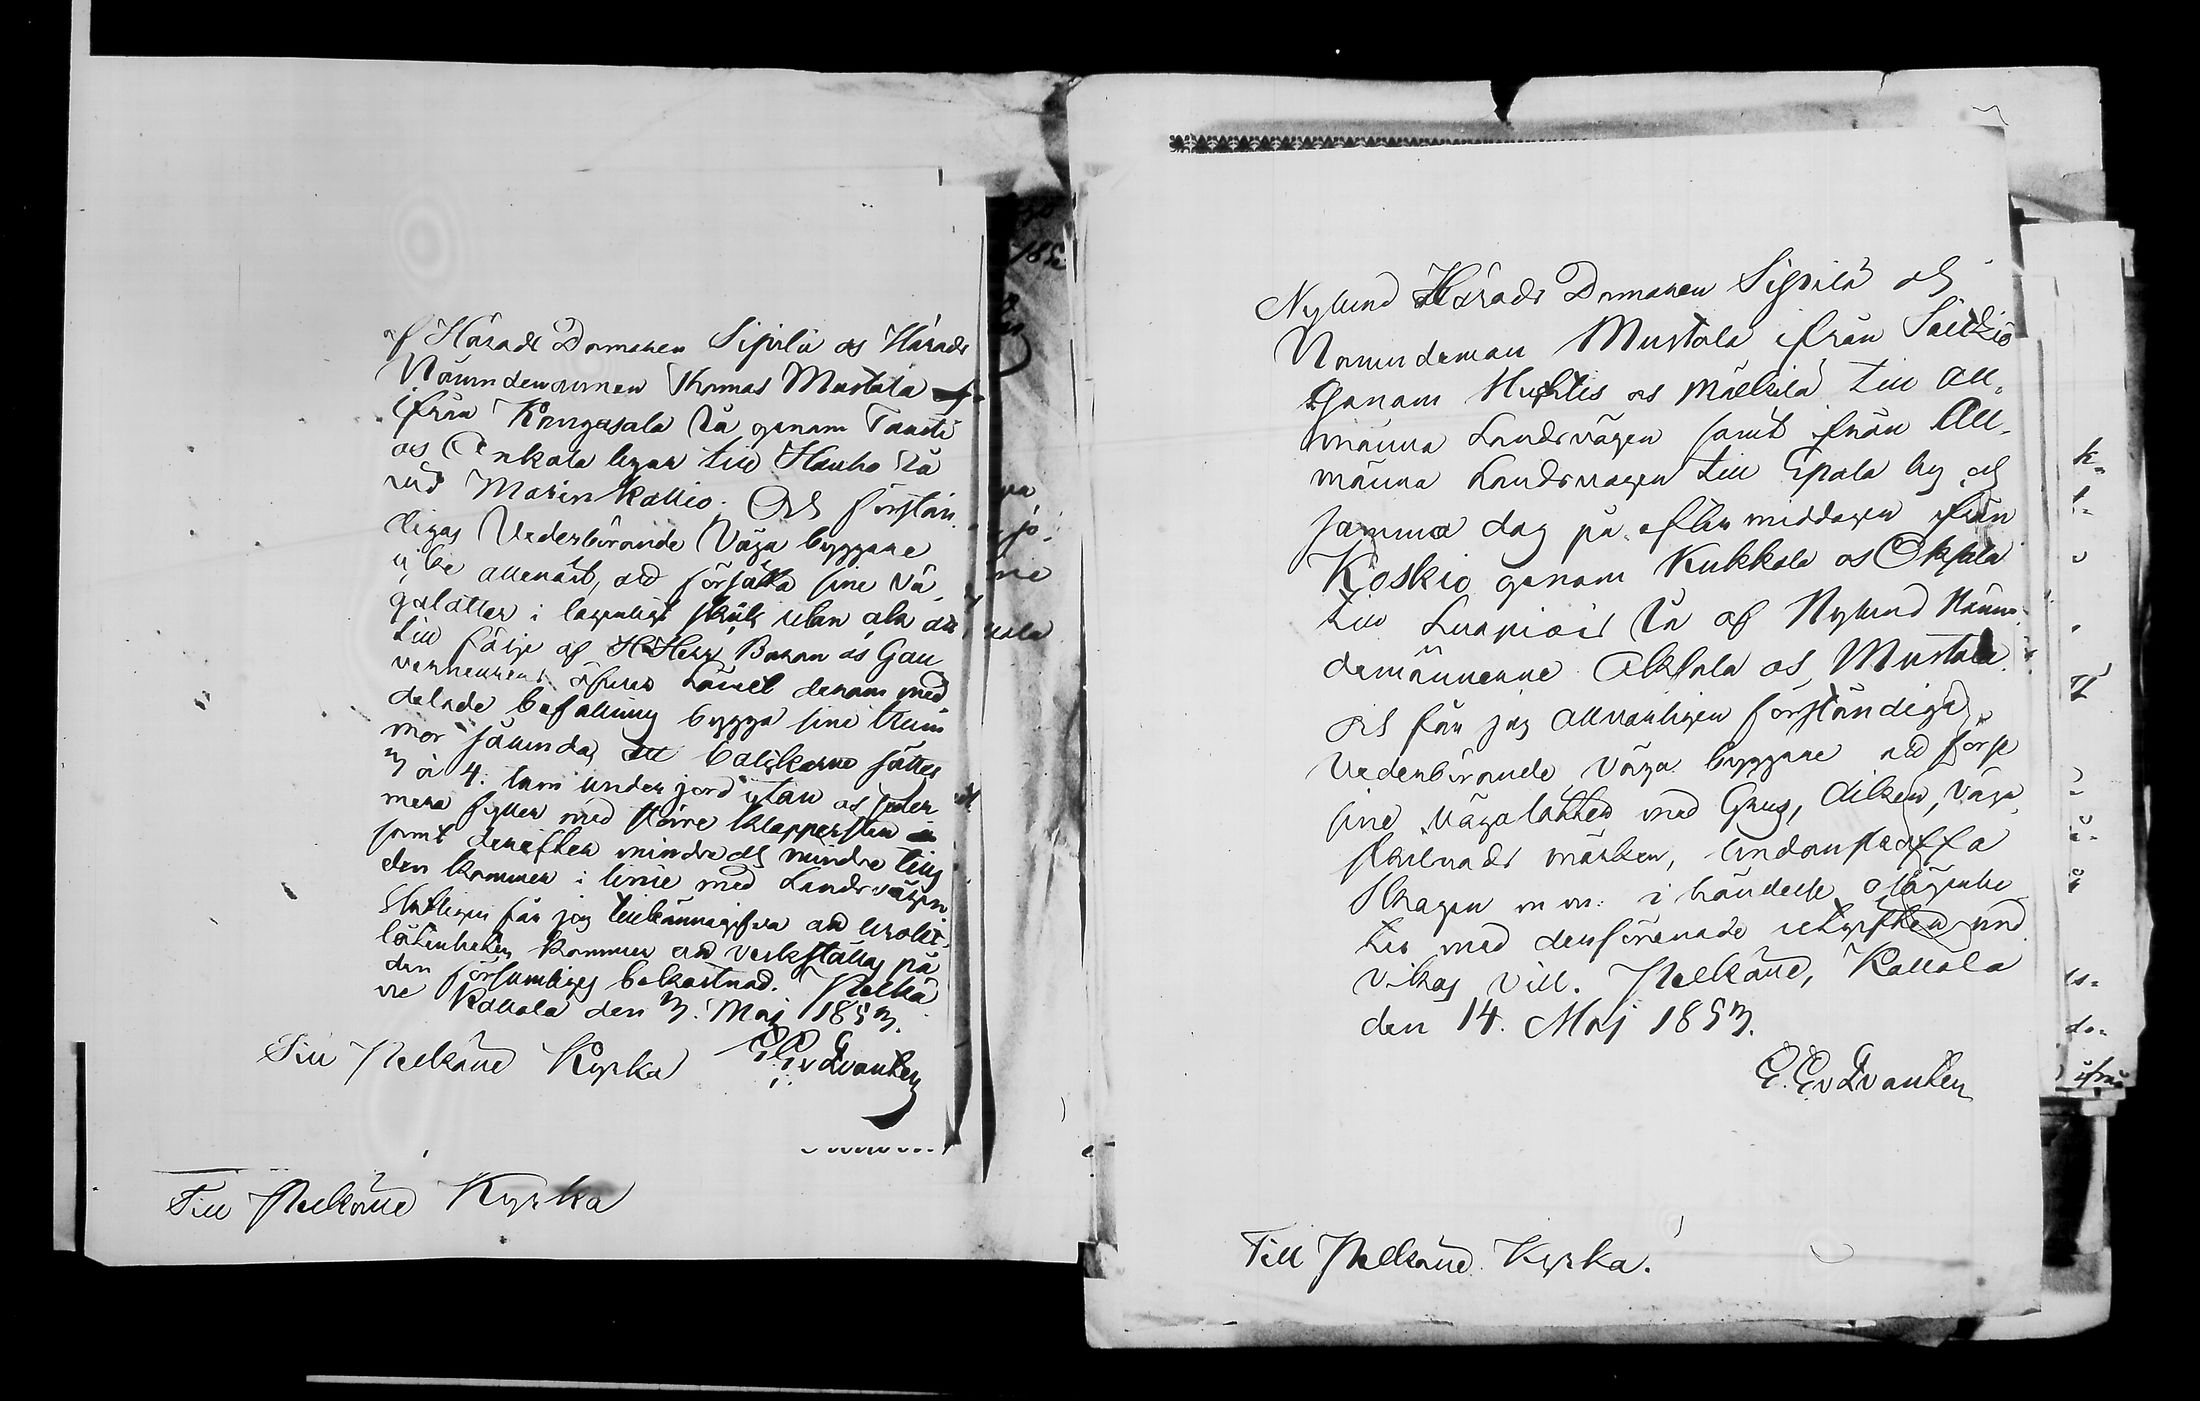 af Härads Domaren Sipilä os Härads
Nämndemannen Thomas Mustala
ifrån Kangasala Rå genom Tausti
os Onkala byar till Hauho Rå
vid Marin kallio. Och förstän,
digas Vederbörande Väga byggare
ej ke allenast, att försätta sine Vä,
galåtter i lagenligt skick utan ock att
till följe af H Herr Baron os Gou
verneurens öfver Länet derom med
delade befallning bygga sine Trum
mor sålunda, att bålckarne sättes
3 à 4. tum under jord ytan os seder
mera fylles med större klappersten
samt derefter mindre och mindre tills
den kommer i linie med Landsvägen.
Slutligen får jag tillkännagifva att uraktt,
låtenheten kommer att verkställas på
den försumliges bekostnad. Pelkä
ne Kollola den 3. Maj 1853.
E. E v Qvanten
Till Pelkäne Kyrka
Till Pelkäne Kyrka
Nylund Härads Domaren Sipilä och
Nämndeman Mustala ifrån Saixiö
genom Huhtis os Mälkilä till All,
männa Landsvägen samt ifrån All,
männa Landsvägen till Epala by, och
samma dag på eftermiddagen ifrån
Koskio genom Kukkola os Okkola
till Luopiois Rå af Nylund Näm
demännerne Okkola os Mustala.
och får jag allvarligen förständiga
Vederbörande Väga byggare att förse
sine vägalåtter med Grus, diken, Väga
skilnads märken, undanskaffa
Skogen m m. i händelse olägenhe
ter med denförenade utsyften und
vikas vill. Pelkäne, Kollola
den 14. Maj 1853.
E. E v Qvanten
Till Pelkäne Kyrka.